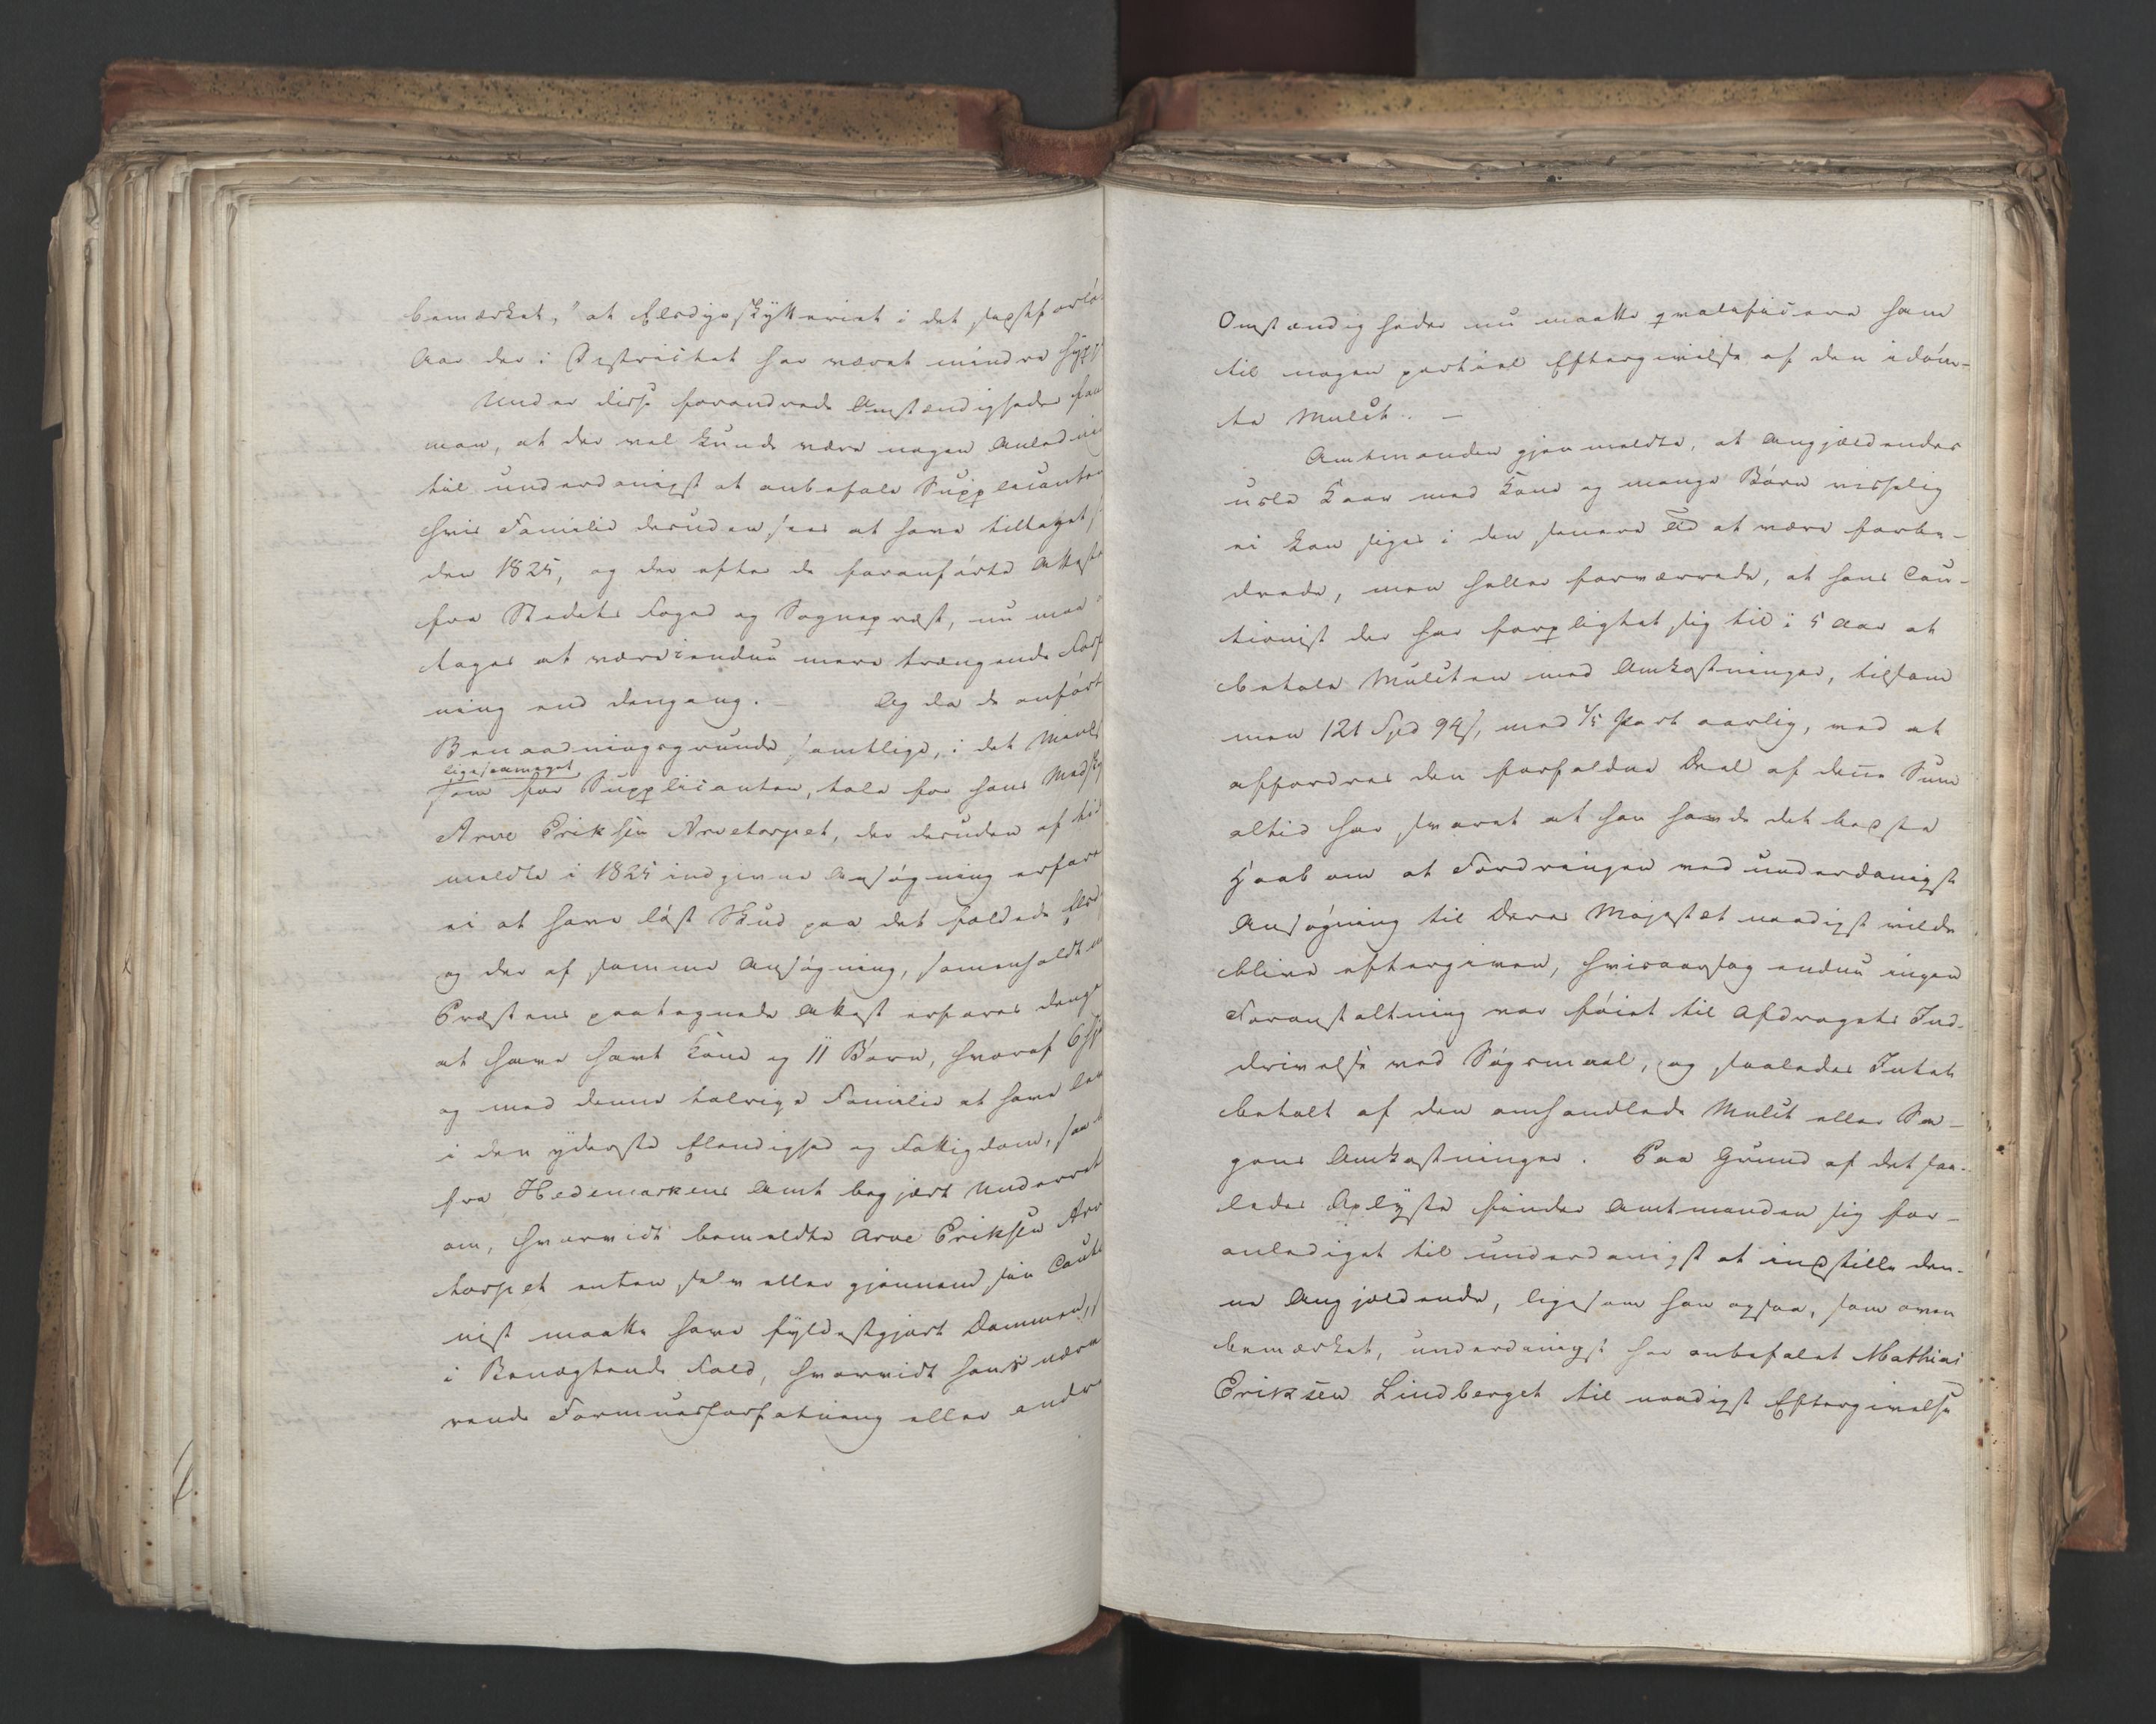 bemærket, "at Elsdyrskytteriet i det sidstforlø-
Aar der i Districtet har været mindre hypp
Under disse forandrede Omstændigheder fan
man, at der vel kunde være nogen Anlednin
til underdanigst at anbefale Supplicanten
hvis Familie desuden sees at have tiltaget,
den 1825, og der efter de foranførte Atteste
fra Stedets Foged og Sognepræst, nu maa
tages at være i endnu mere trængende Forf
ning end dengang. — Og da de anført
Benaadningsgrunde samtlige, i det Mindst
ligesaameget
som for Supplicanten, tale for hans Medsky
Arne Eriksen Arnetorpet, der desuden af bi
meldte i 1825 indgivne Ansøgning erfare
ei at have løst Skud paa det fældede Elsd
og der af samme Ansøgning, samenholdt m
Præstens paategnede Attest erfares denga
at have havt Kone og 11 Børn, hvoraf 6 hj
og med denne talrige Familie at have lev
i den yderste Elendighed og Fattigdom, saa
fra Hedemarkens Amt begjært Underret
om, hvorvidt bemeldte Arne Eriksen Arn
torpet enten selv eller gjennem sin Cauti
nist maatte have fyldestgjort Dommen,
i Benægtende Fald, hvorvidt hans nærvæ
rende Formuesforfatning eller andre
Omstændigheder nu maatte qvalificere ham
til nogen partiel Eftergivelse af den idøm-
te Mulct. —
Amtmanden gjenmeldte, at Angjældendes
usle Kaar med Kone og mange Børn visselig
ei kan siges i den senere Tid at være forbe-
drede, men heller forværrede, at hans Cau-
tionist der har forpligtet sig til i 5 Aar at
betale Mulcten med Omkostninger, tilsam
men 121 Spd 94 s, med 1/5 Part aarlig, ved at
affordres den forfaldne Deel af denne Sum
altid har svaret at han havde det bedste
Haab om at Fordringen ved underdanigst
Ansøgning til Deres Majestet naadigst vilde
blive eftergiven, hvisaarsag endnu ingen
Foranstaltning var føiet til Afdragets Ind-
drivelse ved Søgsmaal, og saaledes Intet
betalt af den omhandlede Mulct eller Sa-
gens Omkostninger. Paa Grund af det saa-
ledes Oplyste finder Amtmanden sig for-
anlediget til underdanigst at indstille den-
ne Angjældende, ligesom han ogsaa, som oven
bemærket, underdanigst har anbefalet Mathias
Eriksen Lindberget til naadigst Eftergivelse